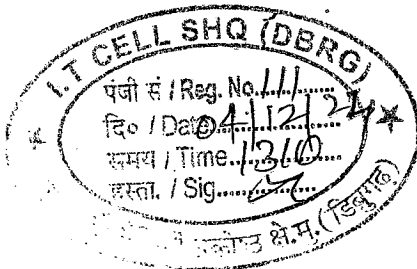 I.T CELL SHQ (DBRG)
पंजी सं / Reg. No. 111
दि० / Date 04/12/24
समय / Time 1310
हस्ता. / Sig.
प्रकोष्ठ क्षे.मु. (डिब्रुगढ़)